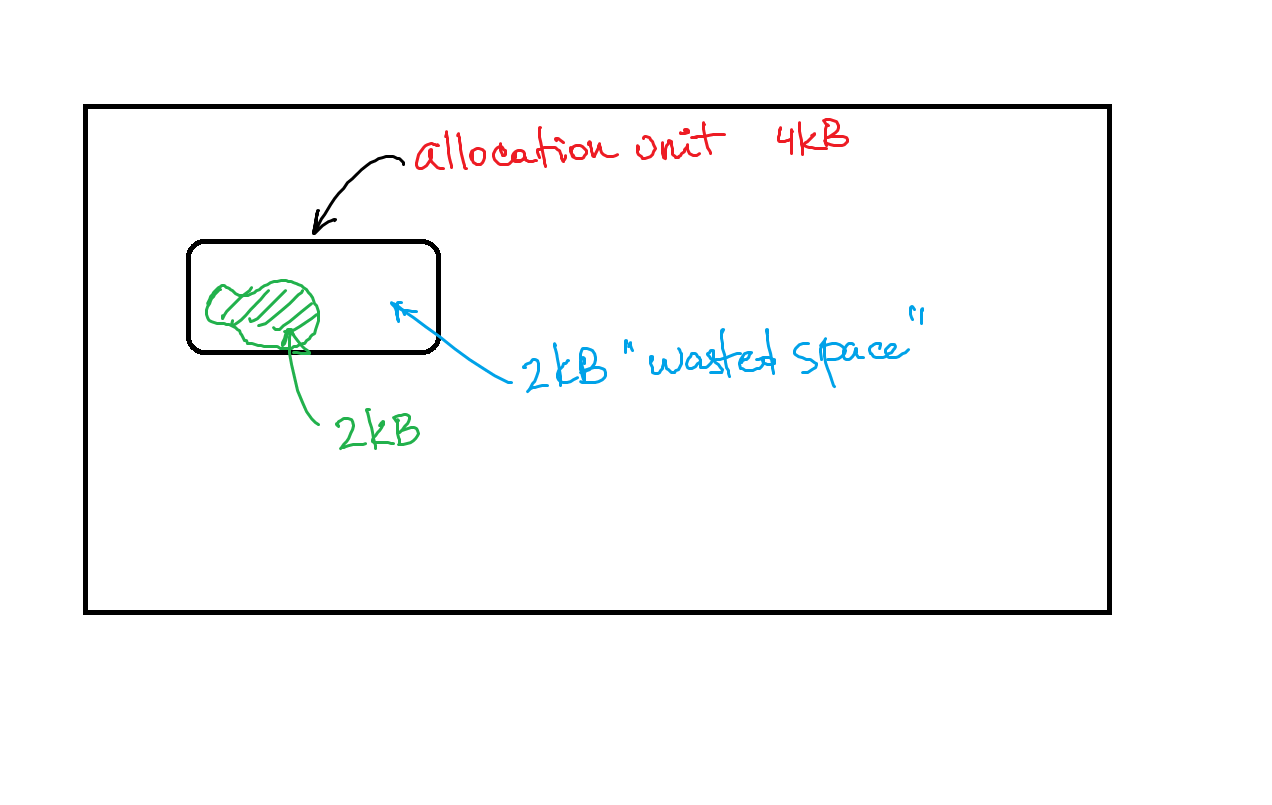 allocation unit 4kB
2kB "wasted space"
2kB